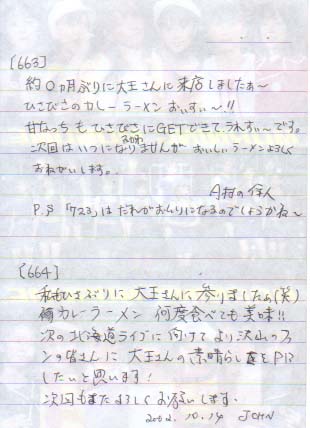 [663]
約0ヵ月ぶりに大王さんに来店しましたぁ～
ひさびさのカレーラーメン おいすぃ～!!
甘なっちもひさびさにGETできて、うれすぃ～です。
次回はいつになりませんが おいしいラーメンよろしく
おねがいします。
A村の住人
P.S 「723」はだれがおふりになるのでしょうかね～
[664]
私もひさぶりに大王さんに参りましたぁ(笑)
カレーラーメン 何度食べても美味!!
次の北海道ライブに向けて より沢山のファ
ンの皆さんに 大王さんの素晴らしさをPR
したいと思います!
次回もまたよろしくお願いします。
2002.10.14 JOHN